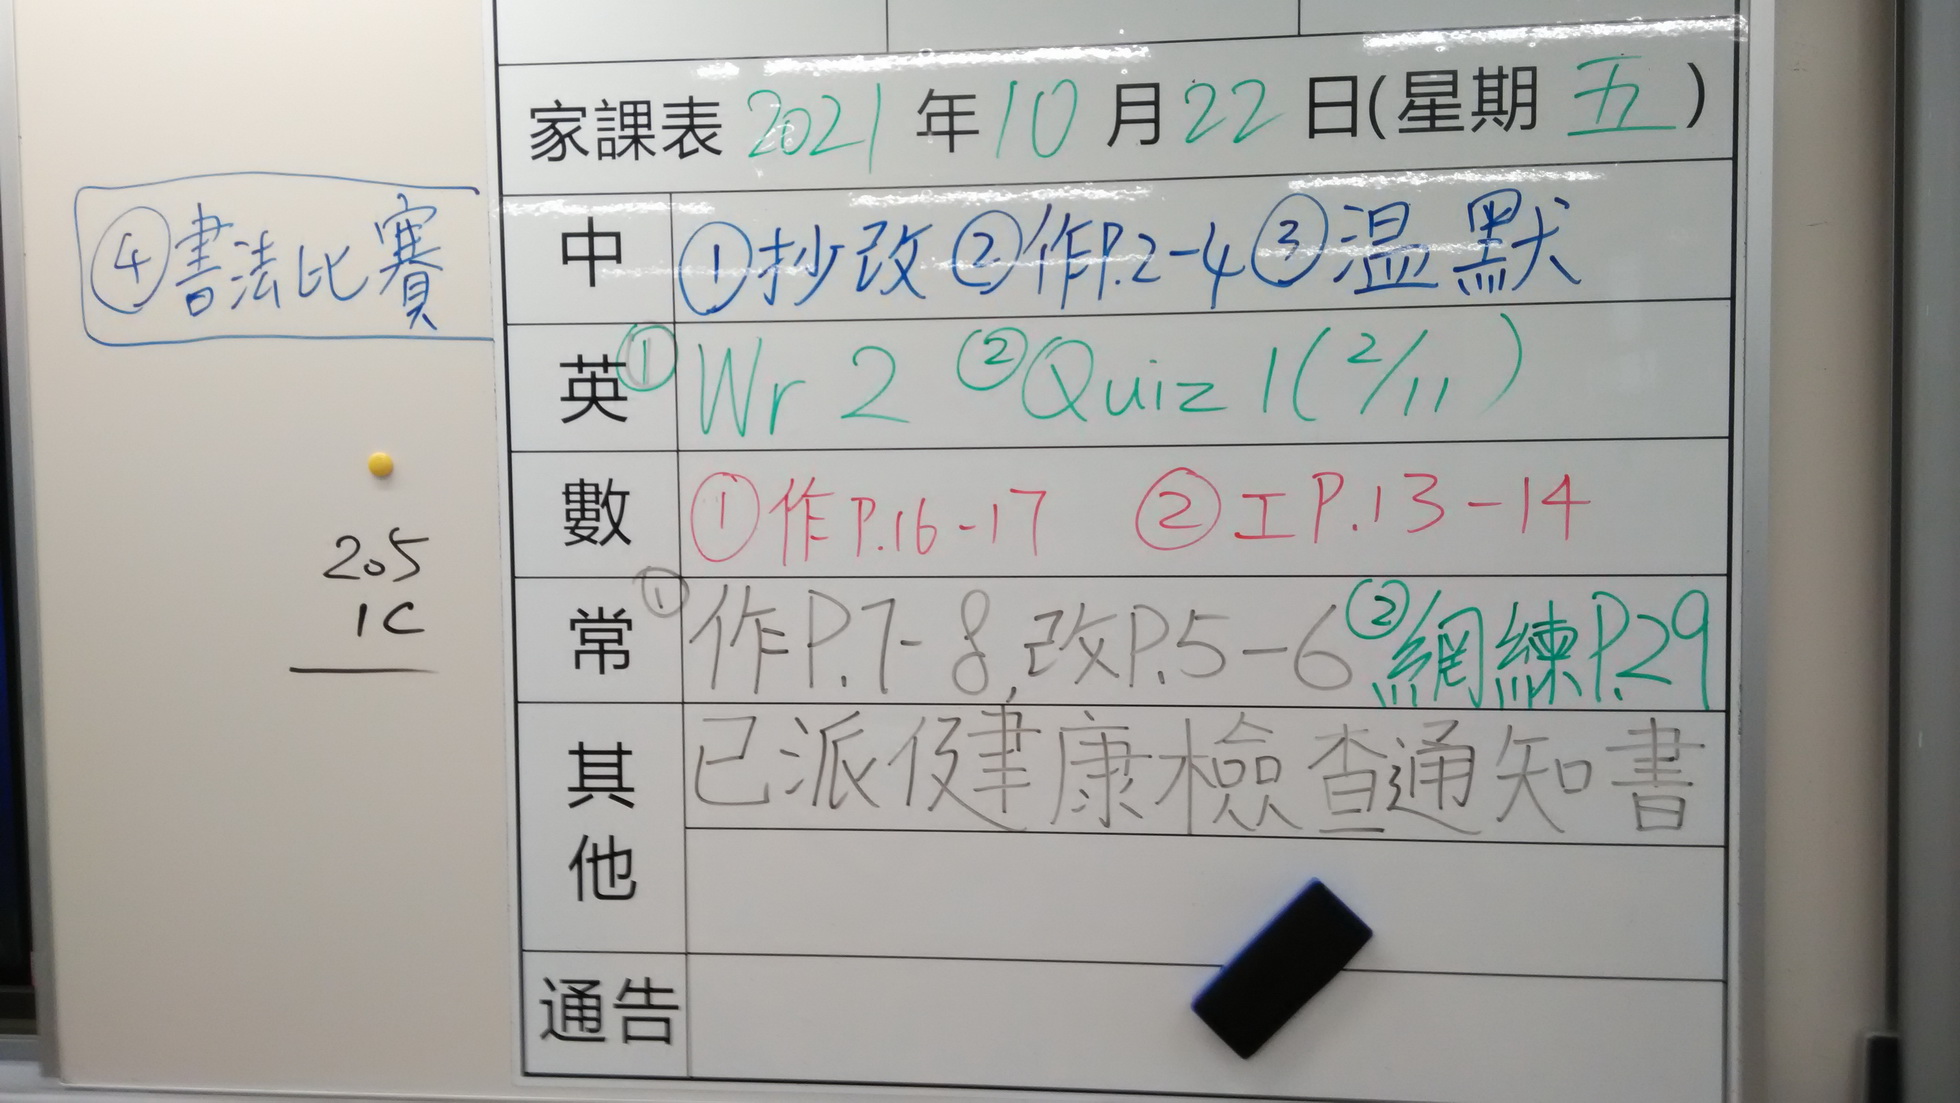 家課表 2021 年 10 月 22 日(星期 五)
④書法比賽
中 ①抄改 ②作P.2-4 ③溫默
英 ① Wr 2 ② Quiz 1 (2/11)
數 ①作P.16-17 ②工P.13-14
常 ①作P.7-8,改P.5-6 ②網練P.29
其他 已派健康檢查通知書
通告
205
1C